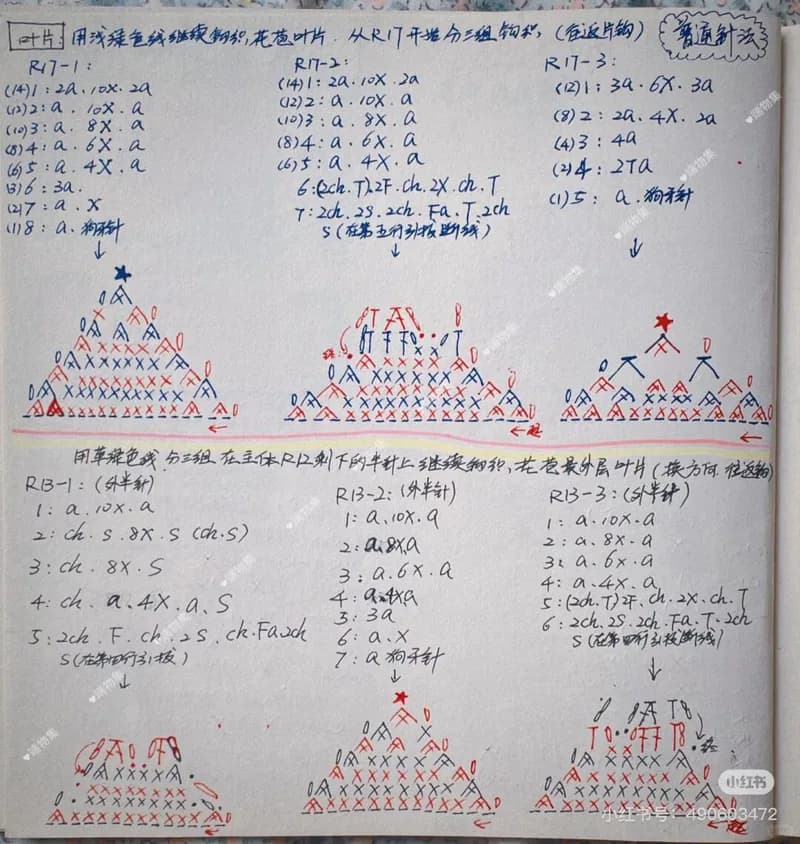 叶片: 用浅绿色线继续钩织,花苞叶片. 从R17开始分三组钩织,(往返片钩)
普通针法
R17-1:
(14)1: 2a.10X.2a
(12)2: a. 10X. a
(10)3: a. 8X. a
(8)4: a. 6X. a
(6)5: a. 4X. a
(3)6: 3a.
(2)7: a. X
(1)8: a. 狗牙针
R17-2:
(14)1: 2a.10X.2a
(12)2: a.10X.a
(10)3: a. 8X. a
(8)4: a. 6X. a
(6)5: a. 4X. a
6:(2ch.T).2F.ch.2X.ch.T
7: 2ch.2S.2ch.Fa.T.2ch
S(在第五行引拔断线)
R17-3:
(12)1: 3a.6X.3a
(8)2: 2a.4X.2a
(4)3: 4a
(2)4: 2Ta
(1)5: a.狗牙针
起
用草绿色线,分三组在主体R12剩下的半针上继续钩织,花苞最外层叶片(换方向.往返钩)
R13-1:(外半针)
1: a.10X.a
2: ch.S.8X.S (ch.S)
3: ch.8X.S
4: ch.a.4X.a.S
5: 2ch.F.ch.2S.ch.Fa.2ch
S(在第四行引拔)
R13-2:(外半针)
1: a.10X.a
2: a.8X.a
3: a.6X.a
4: a.4X.a
5: 3a
6: a.X
7: a 狗牙针
R13-3:(外半针)
1: a.10X.a
2: a.8X.a
3: a.6X.a
4: a.4X.a
5:(2ch.T)2F.ch.2X.ch.T
6: 2ch.2S.2ch.Fa.T.2ch
S(在第四行引拔断线)
起
小红书
小红书号:490603472